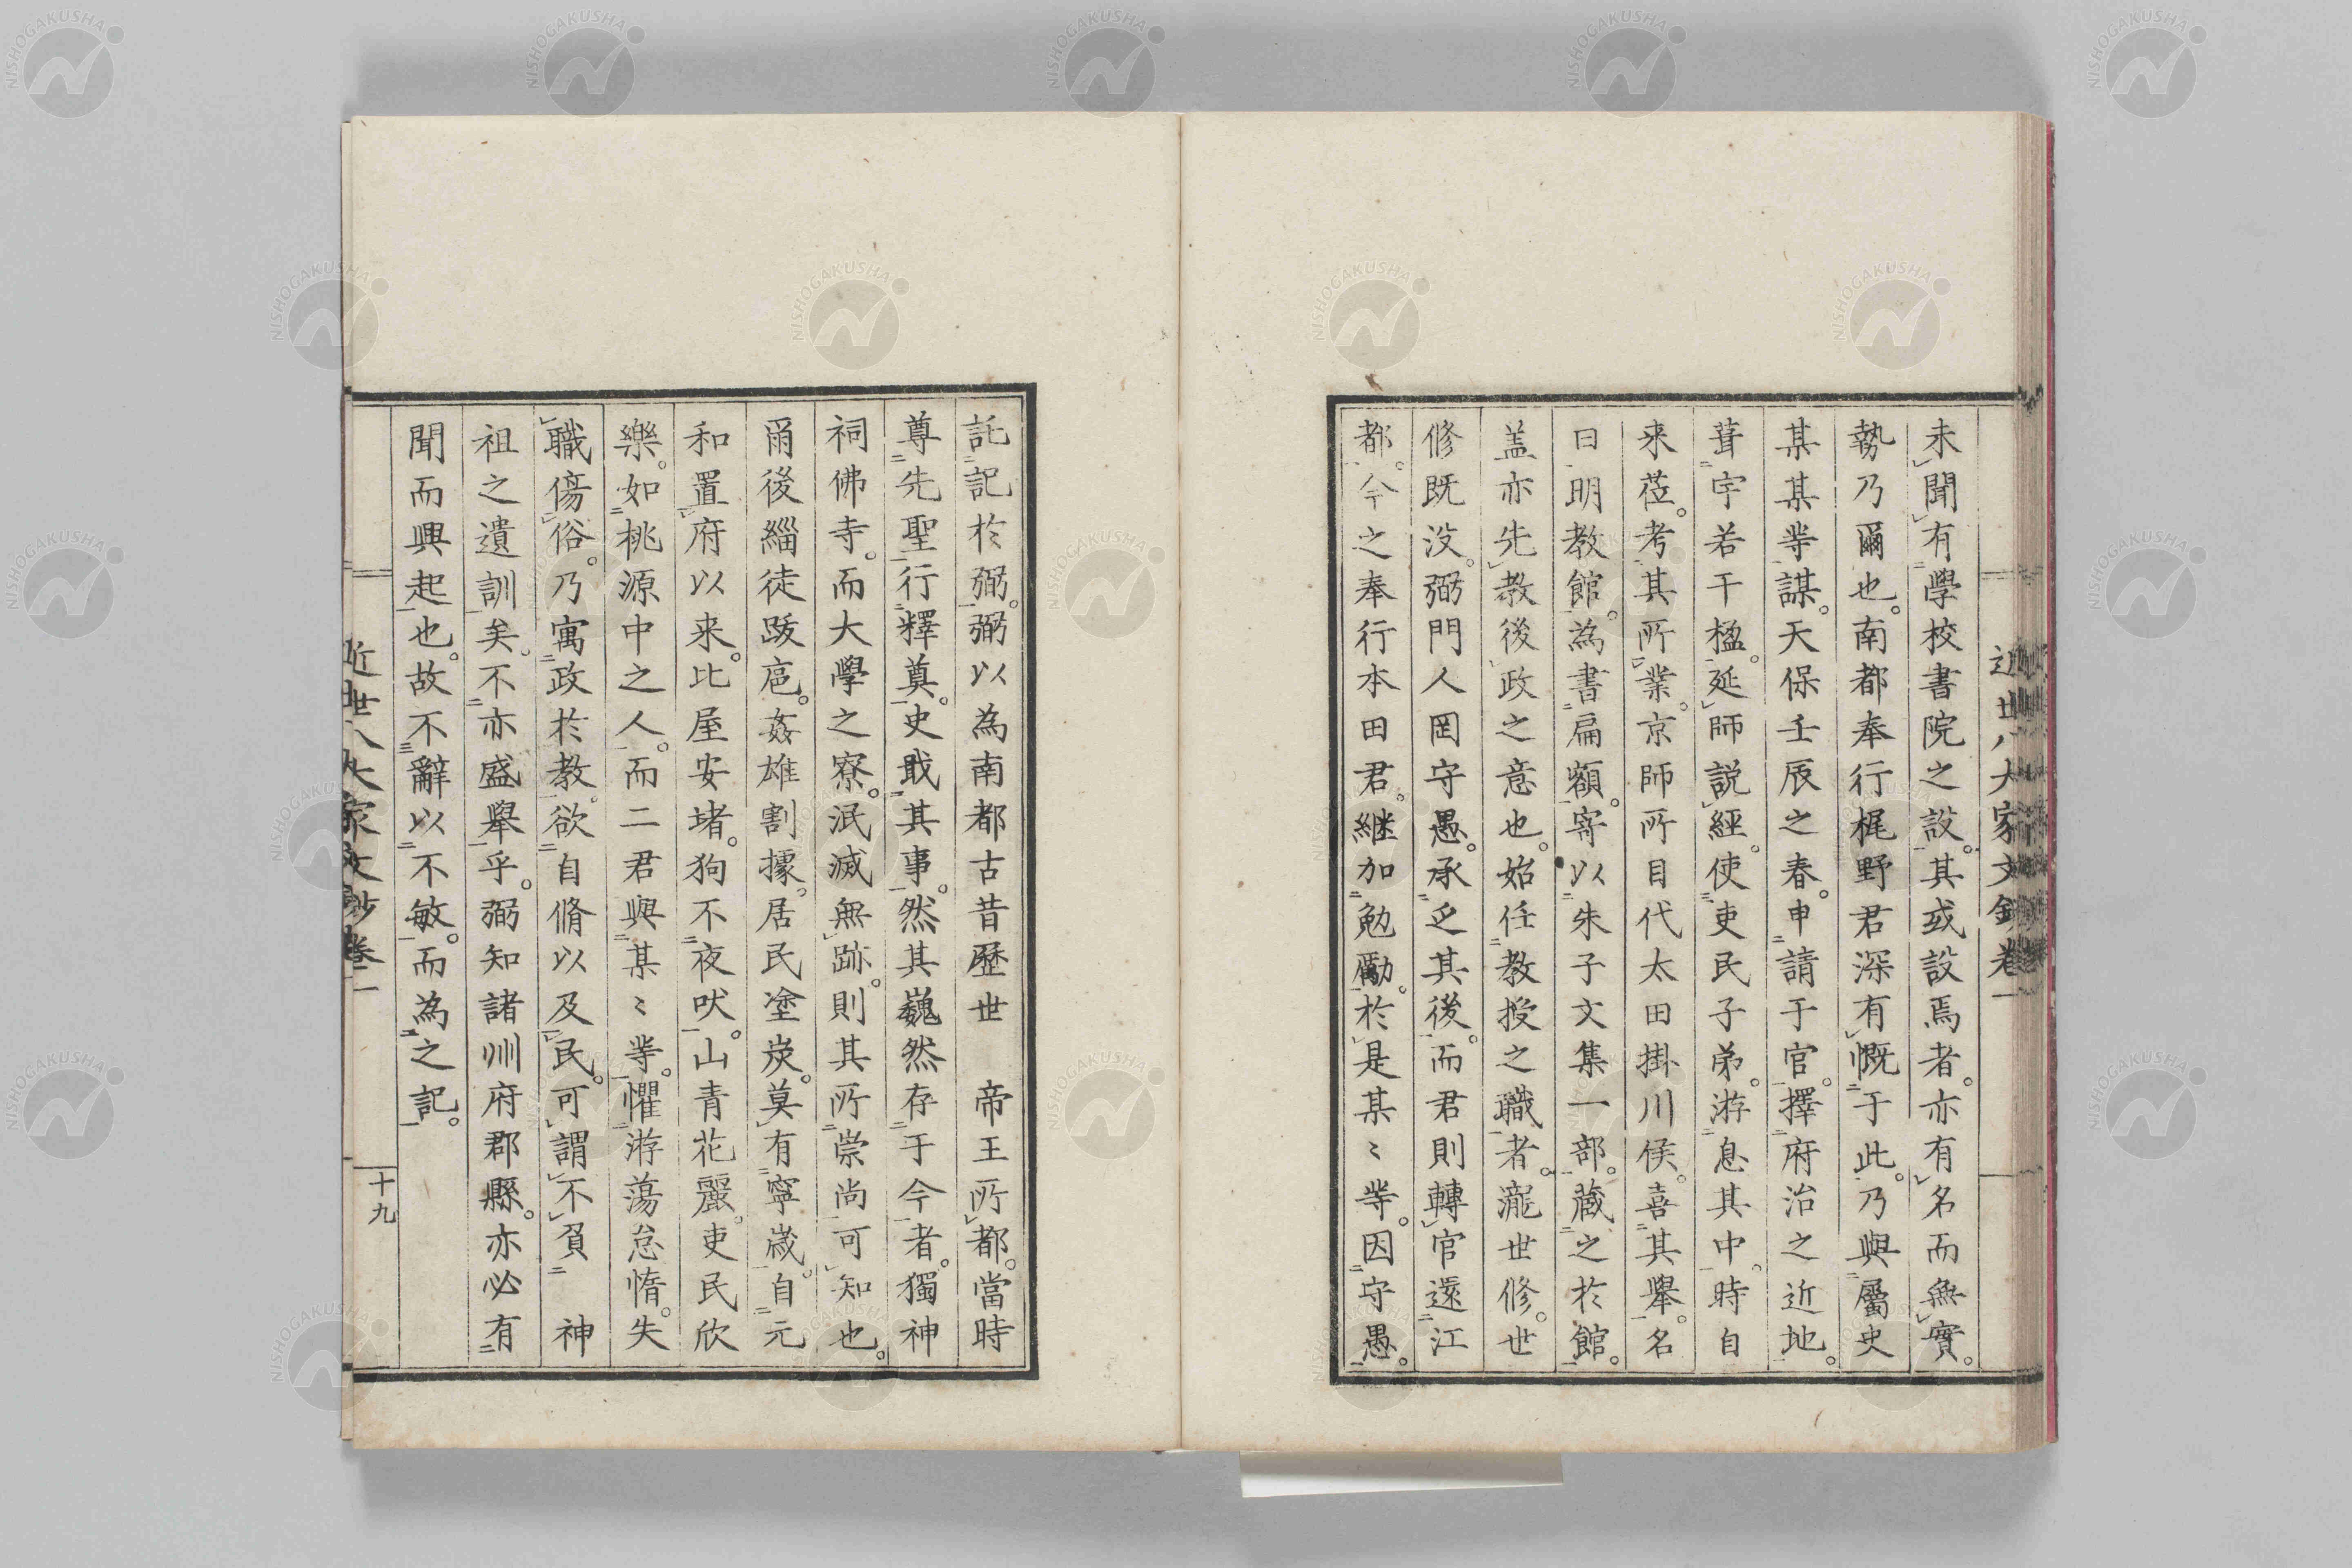 未聞有學校書院之設。其或設焉者。亦有名而無實。
勢乃爾也。南都奉行梶野君深有慨于此。乃與屬吏
某某等謀。天保壬辰之春。申請于官。擇府治之近地。
葺宇若干楹。延師説經。使吏民子弟。游息其中。時自
来莅。考其所業。京師所目代太田掛川侯。喜其舉。名
曰明教館。為書扁額。寄以朱子文集一部。藏之於館。
盖亦先教後政之意也。始任教授之職者。瀧世修。世
修既没。弼門人岡守愚。承乏其後。而君則轉官遠江
都。今之奉行本田君。継加勉勵。於是某〻等。因守愚。
近世八大家文鈔卷一
託記於弼。弼以為南都古昔歴世　帝王所都。當時
尊先聖。行釋奠。史戢其事。然其巍然存于今者。獨神
祠佛寺。而大學之寮。泯滅無跡。則其所崇尚可知也。
爾後緇徒跋扈。姦雄割據。居民塗炭。莫有寧歳。自元
和置府以来。比屋安堵。狗不夜吠。山青花麗。吏民欣
樂。如桃源中之人。而二君與某〻等。懼游蕩怠惰。失
職傷俗。乃寓政於教。欲自脩以及民。可謂不負　神
祖之遺訓矣。不亦盛舉乎。弼知諸州府郡縣。亦必有
聞而興起也。故不辭以不敏。而為之記。
近世八大家文鈔卷一
十九